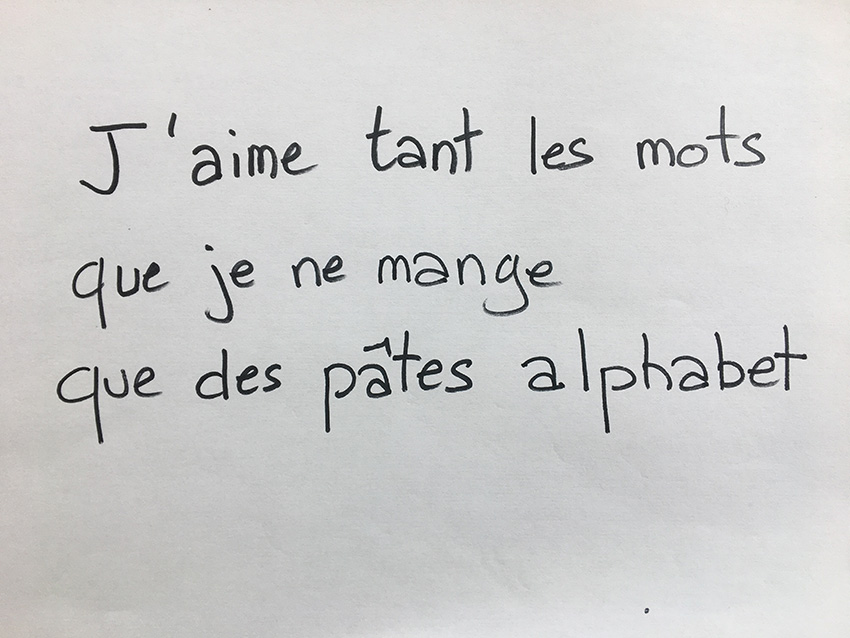 J'aime tant les mots
que je ne mange
que des pâtes alphabet